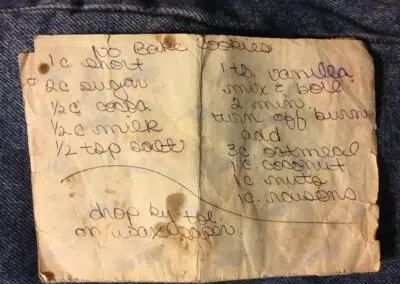 No Bake Cookies
1 c. short
2c sugar
1/2c cocoa
1/2c milk
1/2 tsp salt
1 tb. vanilla
mix & boil
2 min.
turn off burn
add
3c. oatmeal
1c coconut
1c. nuts
1c. raisons
drop by tbl.
on waxpaper.